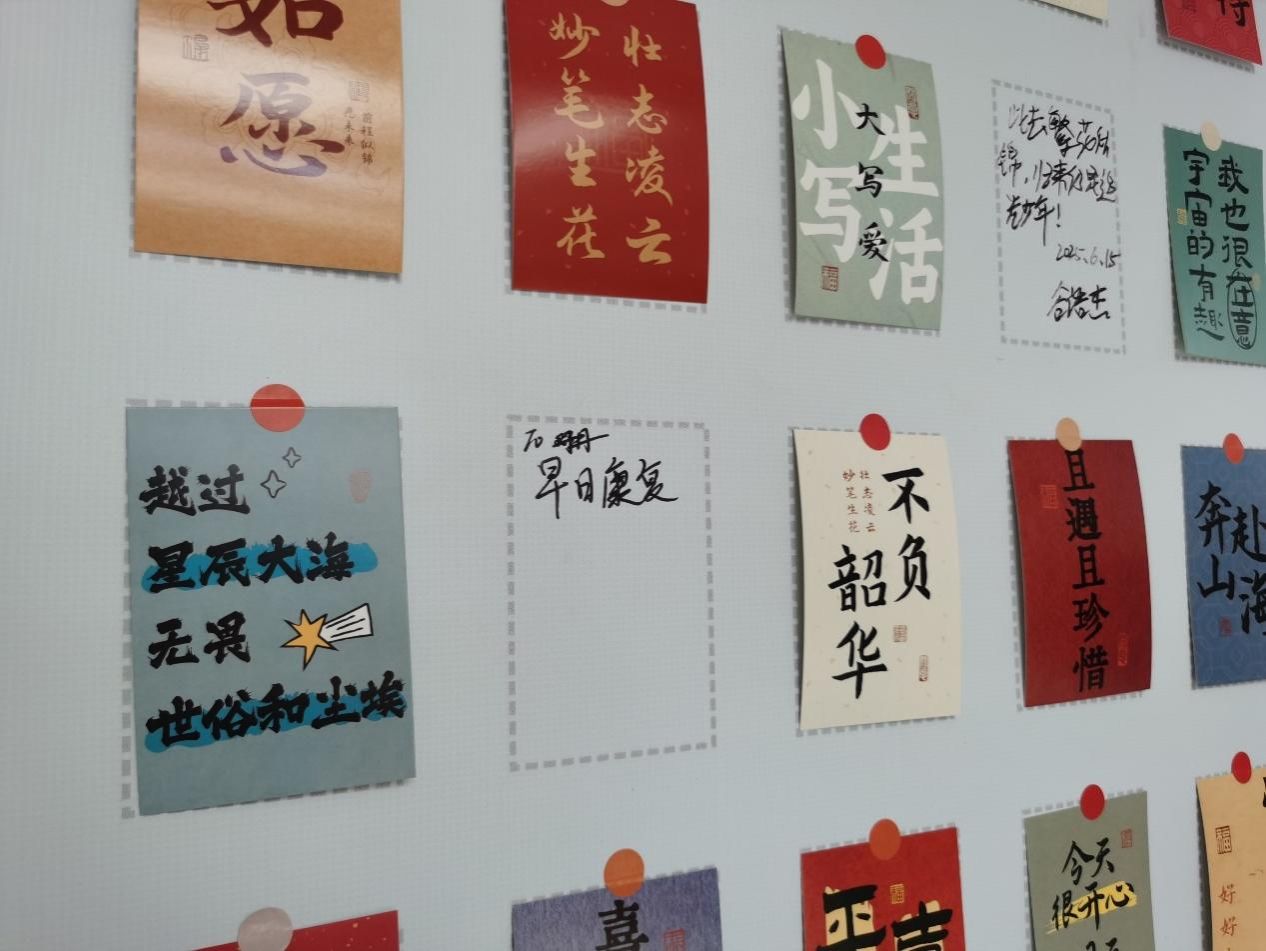 如
愿
前程似锦
壮志凌云
妙笔生花
小写
生活
大写爱
福
此去繁花似
锦，归来仍是追
光少年！
2025.6.15
我也很在意
宇宙的有趣
越过
星辰大海
无畏
世俗和尘埃
早日康复
不负
韶华
壮志凌云
妙笔生花
且遇且珍惜
奔赴
山海
喜
今天
很开心
福
好
好